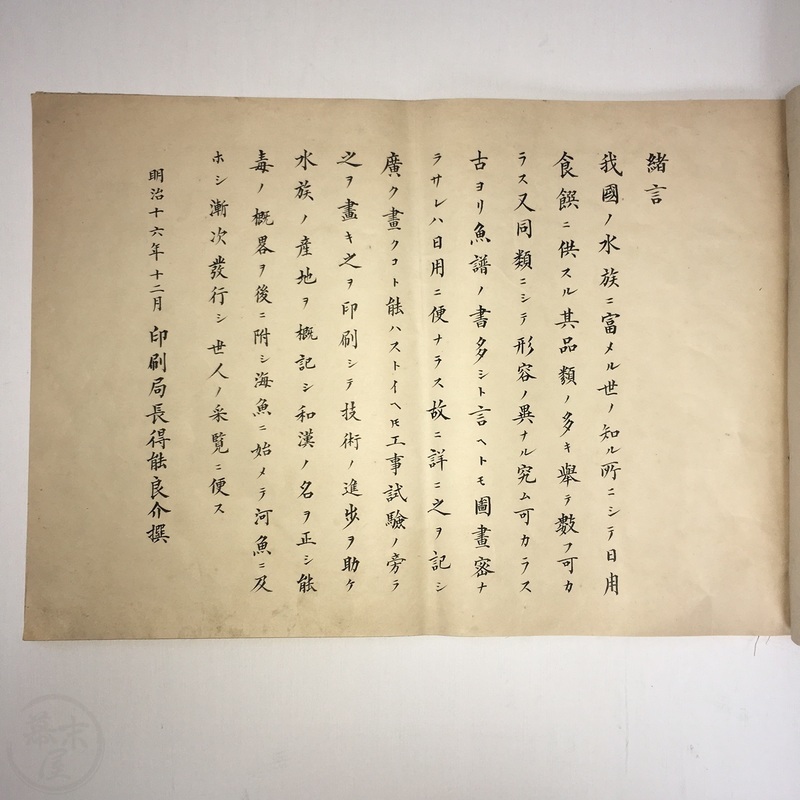 緒言
我國ノ水族ニ富メル世ノ知ル所ニシテ日用
食饌ニ供スル其品類ノ多キ擧テ數フ可カ
ラス又同類ニシテ形容ノ異ナル究ム可カラス
古ヨリ魚譜ノ書多シト言ヘトモ圖畫密ナ
ラサレハ日用ニ便ナラス故ニ詳ニ之ヲ記シ
廣ク畫クコト能ハストイヘ𪜈工事試驗ノ旁ラ
之ヲ畫キ之ヲ印刷シテ技術ノ進步ヲ助ケ
水族ノ産地ヲ概記シ和漢ノ名ヲ正シ能
毒ノ概畧ヲ後ニ附シ海魚ニ始メテ河魚ニ及
ホシ漸次發行シ世人ノ采覽ニ便ス
明治十六年十二月 印刷局長得能良介撰
幕末屋